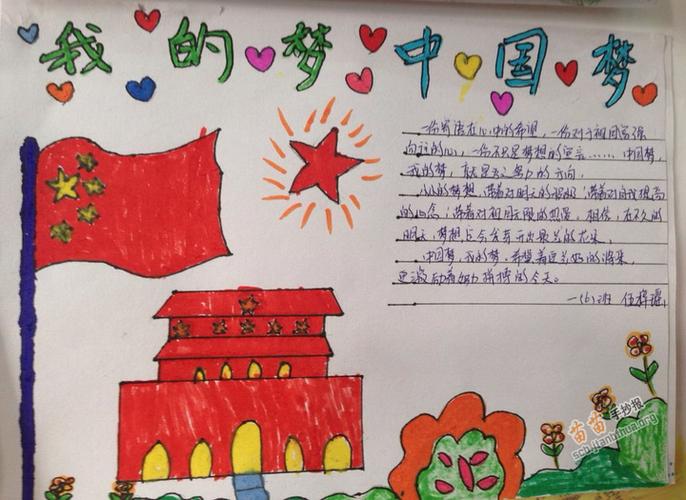 我的梦 中国梦
一份寄语在心中的希望,一份对于祖国富强
向往的心,一份不只是梦想的宣言……中国梦,
我的梦,就是努力的方向。
小小的梦想,带着对明天的期盼;带着对自我提高
的心念;带着对祖国无限的热爱,相信,在不久的
明天,梦想总会含苞开出最美的花朵。
中国梦,我的梦。希望着更美好的将来,
更激励着努力拼搏的今天。
一(6)班 伍梓瑶
苗苗手抄报
scb.jianbihua.org